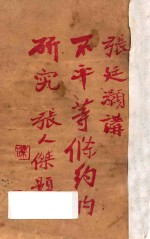 張廷灝講
不平等條約的
研究 張人傑題